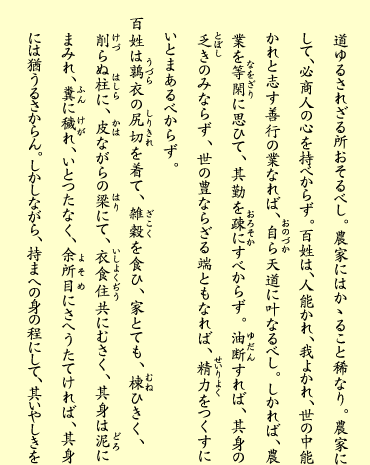 道ゆるされざる所おそるべし。農家にはかゝること稀なり。農家に
して、必商人の心を持べからず。百姓は、人能かれ、我よかれ、世の中能
かれと志す善行の業なれば、自ら天道に叶なるべし。しかれば、農
業を等閑に思ひて、其勤を疎にすべからず。油断すれば、其身の
乏きのみならず、世の豊ならざる端ともなれば、精力をつくすに
いとまあるべからず。
百姓は鶉衣の尻切を着て、雑穀を食ひ、家とても、棟ひきく、
削らぬ柱に、皮ながらの梁にて、衣食住共にむさく、其身は泥に
まみれ、糞に穢れ、いとつたなく、余所目にさへうたてければ、其身
には猶うるさからん。しかしながら、持まへの身の程にして、其いやしきを